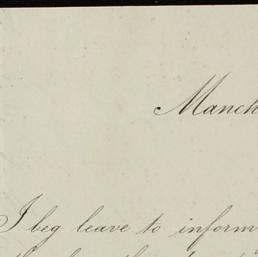 Manch
I beg leave to inform